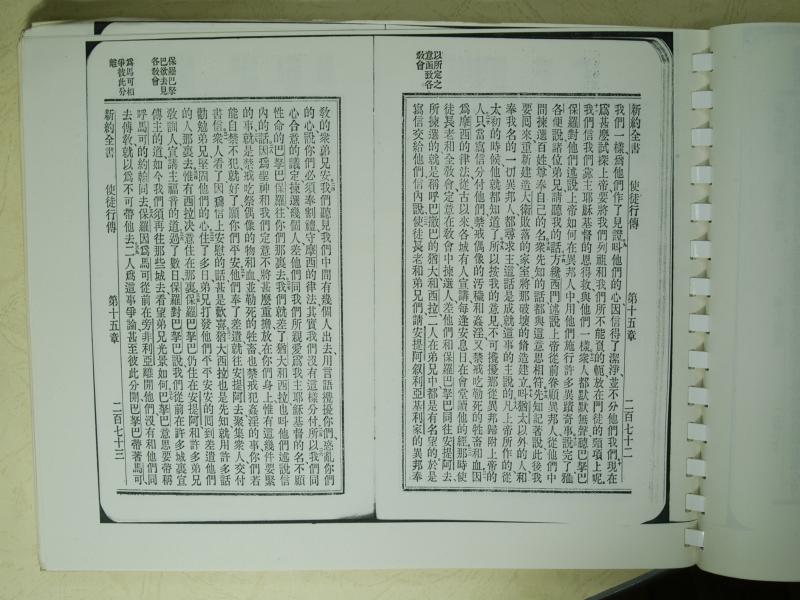 以所定之
意函致各
敎會
新約全書 使徒行傳 第十五章 二百七十二
我們一樣爲他們作了見證呌他們的心因信得了潔淨並不分他們我們現在
爲甚麼試探上帝要將我們列祖和我們所不能負的軛放在門徒的頸項上呢
我們信我們靠主耶穌基督的恩得救與他們一樣衆人都默默無聲聽巴拏巴
保羅對他們述說上帝如何在異邦人中用他們施行許多異蹟奇事說完了雅
各便說諸位弟兄請聽我的話方纔西門述說上帝從前眷顧異邦人從他們中
間揀選百姓尊奉自己的名衆先知的話都與這意思相符先知記著說此後我
要囘來重新建造大衛敗落的家室將那破壞的脩造建立呌猶太以外的人和
奉我名的一切異邦人都尋求主這話是成就這事的主說的凡上帝所作的從
太初的時候他就都知道了所以按我的意見不可攪擾那從異邦歸附上帝的
人只當寫信分付他們禁戒偶像的汚穢和姦淫又禁戒吃勒死的牲畜和血因
爲摩西的律法從古以來各城有人宣講每逢安息日在會堂讀他的經那時使
徒長老和全敎會定意在敎會中揀選人差他們和保羅巴拏巴同往安提阿去
所揀選的就是稱呼巴撒巴的猶大和西拉二人在弟兄中都是有名望的於是
寫信交給他們信內說使徒長老和弟兄們請安提阿敘利亞基利家的異邦奉
保羅巴拏
巴欲去見
各敎會
爲馬可相
爭彼此分
離
敎的衆弟兄安我們聽見我們中間有幾個人出去用言語攪擾你們惑亂你們
的心說你們必須奉割禮守摩西的律法其實我們沒有這樣分付所以我們同
心合意的議定揀選幾個人差他們同我們所親愛爲我主耶穌基督的名不顧
性命的巴拏巴保羅往你們那裏去我們就差了猶大和西拉也呌他們述說信
內的話因爲聖神和我們定意不將甚麼重擔放在你們身上惟有這幾件要緊
的事就是禁戒吃祭偶像的物和血並勒死的牲畜也禁戒姦淫的事你們若
能自禁不犯就好了願你們平安他們奉了差遣就往安提阿去聚集衆人交付
書信衆人看了因爲信上安慰的話甚是歡喜猶大西拉也是先知就用許多話
勸勉弟兄堅固他們的心住了多日弟兄打發他們平平安安的囘到差遣他們
的人那裏去惟有西拉决意住在那裏保羅巴拏巴仍住在安提阿和許多弟兄
敎訓人宣講主福音的道過了數日保羅對巴拏巴說我們從前在許多城裏宣
傳主的道如今我們須再往那些城去看望弟兄光景如何巴拏巴意思要帶稱
呼馬可的約翰同去保羅因爲馬可從前在旁非利亞離開他們沒有和他們同
去傳敎就以爲不可帶他去二人爲這事爭論甚至彼此分開巴拏巴帶著馬可
新約全書 使徒行傳 第十五章 二百七十三